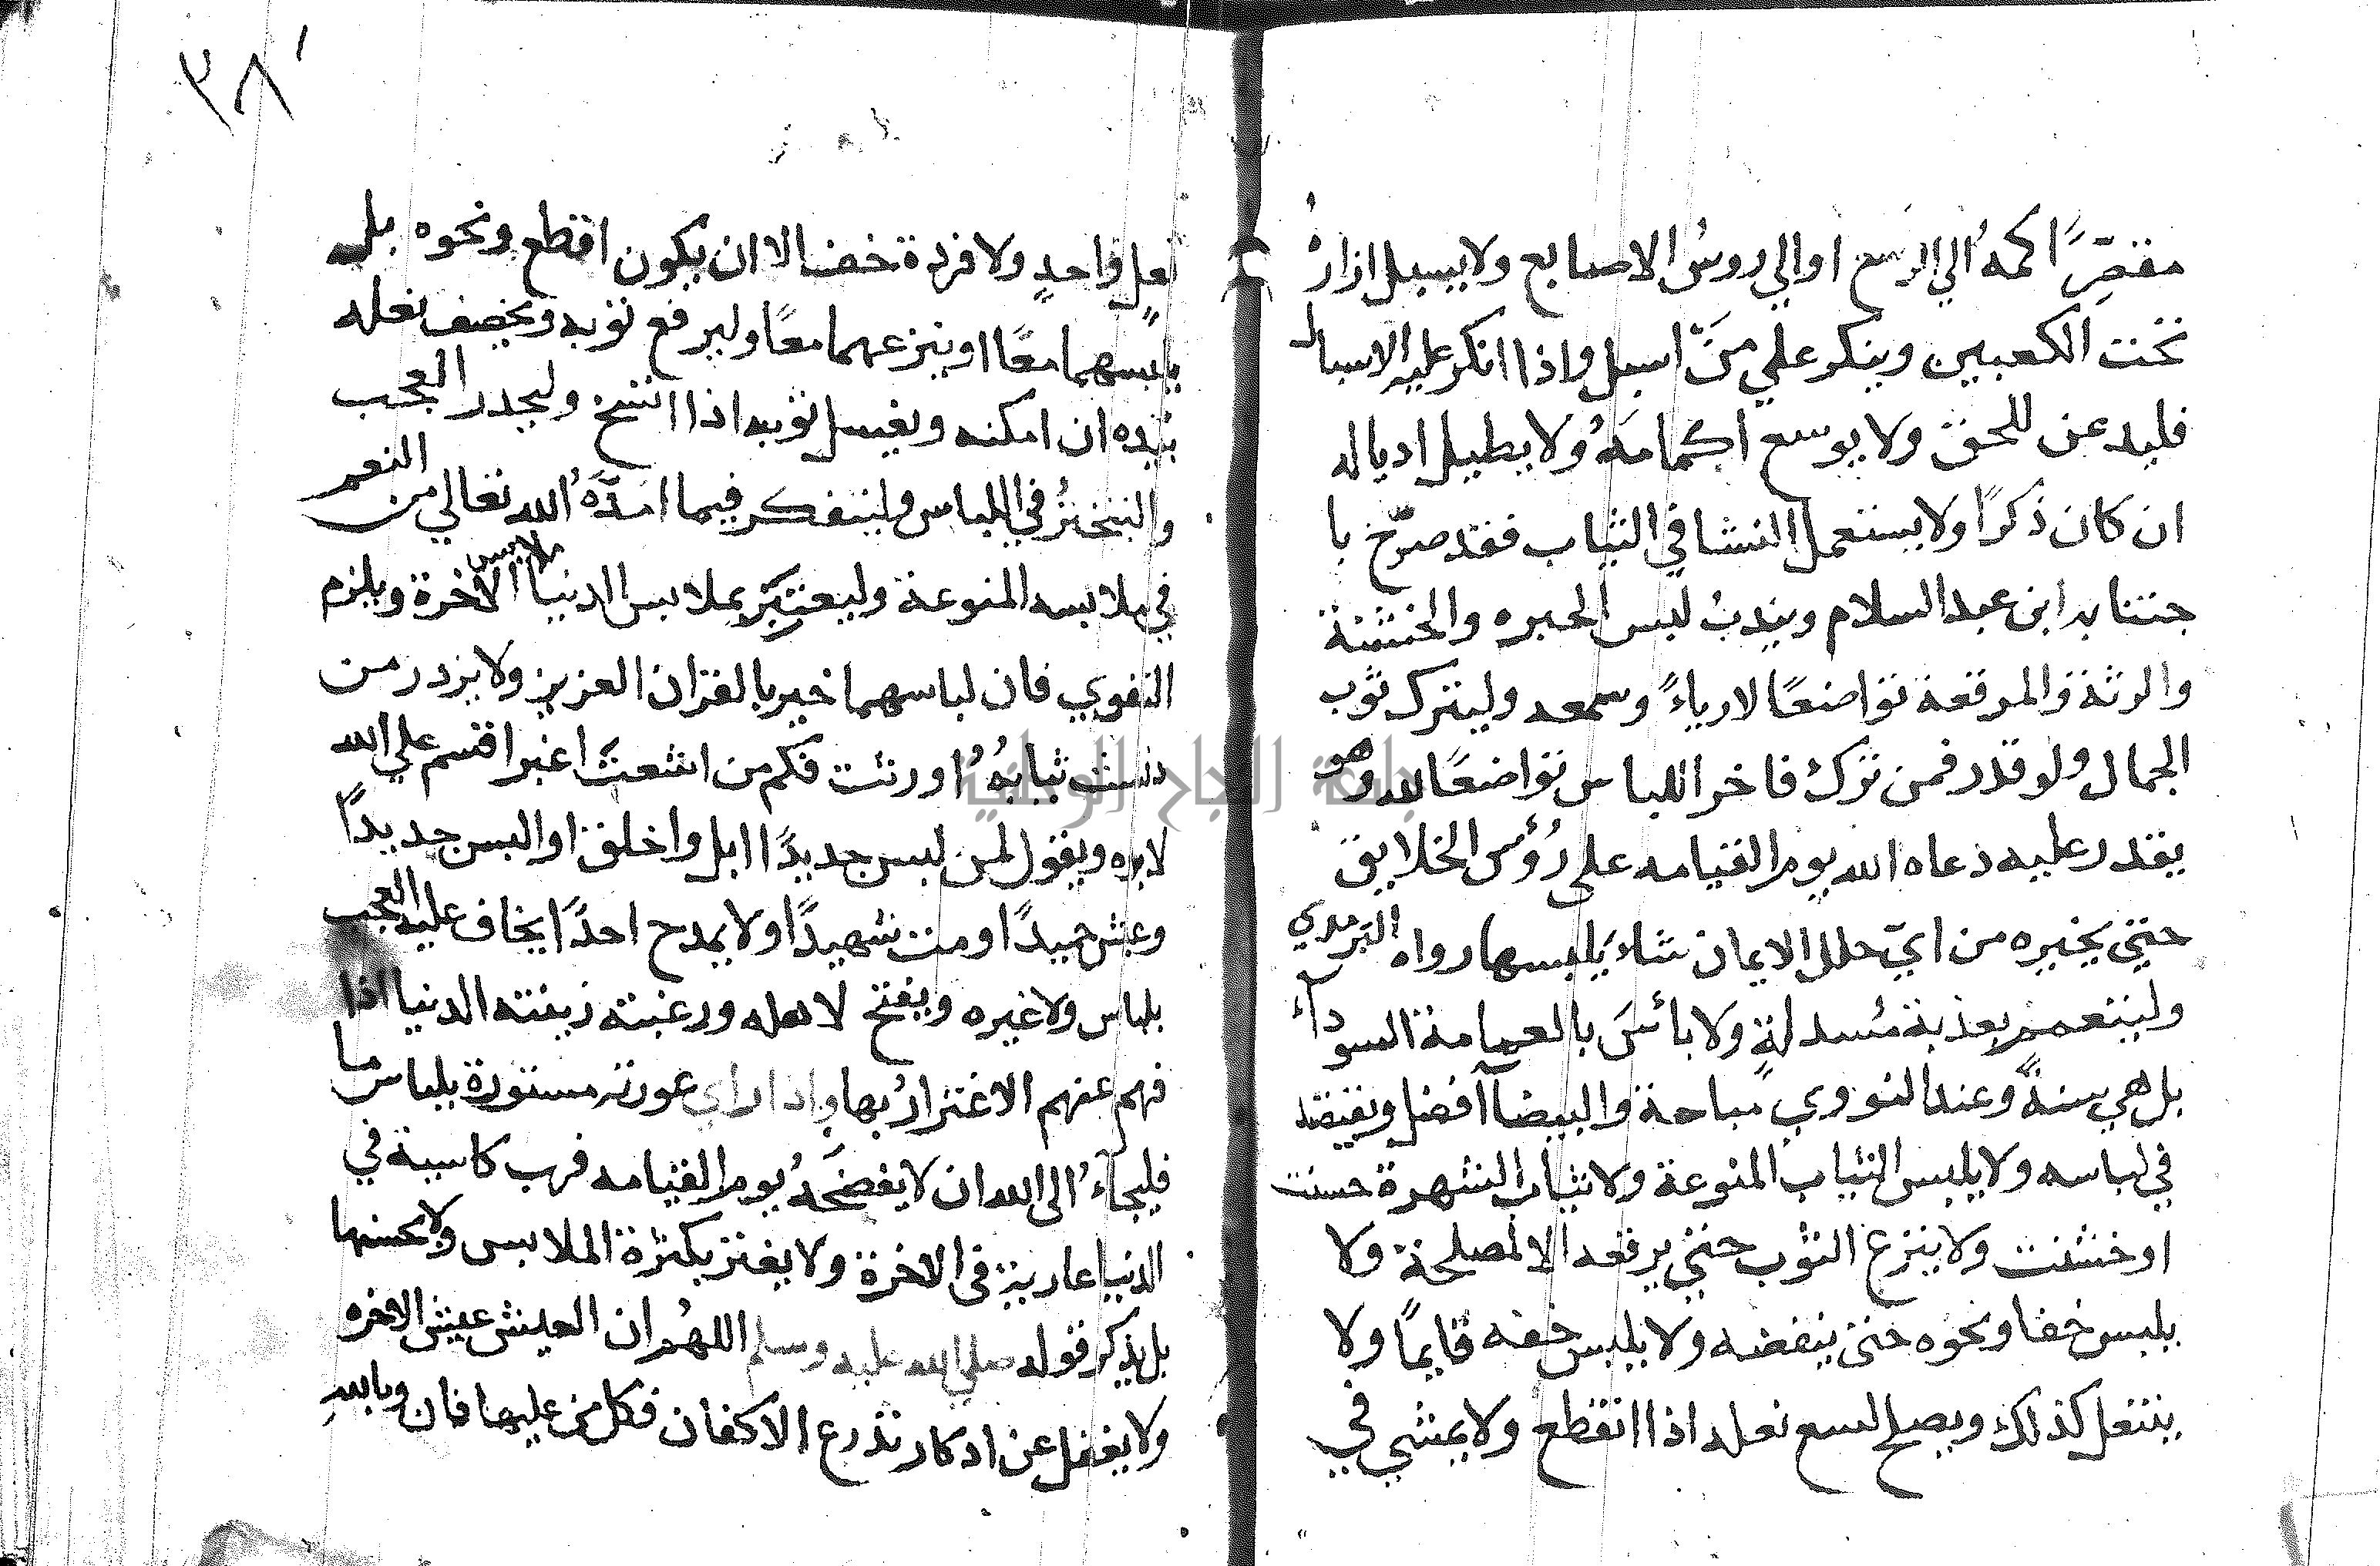 مقصِّرًا كمهُ الي الرسع اوالي روسُ الاصابع ولايسبل ازارهُ
تحت الكعبين وينكر علي مَنّ اسبل واذا انكر عليه الاسبال
فليدعن للحق ولا يوسع اكمامهُ ولا يطيل اديا له
ان كان ذكرًا ولا يستعمل النشا في الثياب فقد صرّح با
جتنا به ابن عبد السلام ويندبُ لبس الحبره والخشنة
والرثة والمرقعة تواضعًا لا رياءً وسمعه وليترك ثوب
الجمال ولو قدر فمن ترك فاخر اللباس تواضعًا لله وهو
يقدر عليه دعاه الله يوم القيامه على رُؤس الخلايق
حتي يخيره من ايّ حلل الايمان شاءَ يلبسها رواه الترمدي
وليتعمم بعذبة مُسدلةٍ ولا بائسَ بالعمامة السودآء
بل هي سنةً وعند النووي مباحة والبيضآ آفضل ويقتصد
في لباسه ولا يلبس الثياب المنوعة ولا ثياب الشهرة حسنت
او خشنت ولا ينزع الثوب حتي يرقعه الا لمصلحة ولا
يلبس خفا ونحوه حتي ينفضه ولا يلبس خفه قايمًا ولا
ينتعل كذلك ويصلح لسع نعله اذا انقطع ولا يمشي في
٣٨
نعلٍ واحدٍ ولا فردة خف الا ان يكون اقطع ونحوه بل
يلبسهما معًا او ينزعهما معًا وليرقع ثوبه ويخصف نعله
بيده ان امكنه ويغسل ثوبه اذا اتسخ وليحدر العجب
والتبخترُ في اللباس وليتفكر فيما امدّهُ الله تعالي من النعم
في ملابسه المنوعة وليعتبرَ بملابس الدنيا ملابس الاخرة ويلزم
التقوي فان لباسهما خير بالقران العزيز ولا يزدر من
دنست ثيابهُ او رثت فكم من اشعث اغبر اقسم علي الله
لابره ويقول لمن لبس جديدًا ابل واخلق او البس جديدًا
وعش حميدًا ومت شهيدًا ولا يمدح احدًا يخاف عليه العجب
بلباس ولا غيره ويفتح لاهله ورعيته زينته الدنيا اذا
فهم عنهم الاغترارُ بها واذا راي عورته مستورة بلباس ما
فليجآءُ الى الله ان لا يفضحَهُ يوم القيامه فرب كاسية في
الدنيا عارية في الاخرة ولا يغتر بكثرة الملابس ولا بحسنها
بل يذكر قوله صلي الله عليه وسلم اللهُم ان العيش عيش الاخره
ولا يغفل عن ادكار تدرع الاكفان فكل من عليها فان وبالله